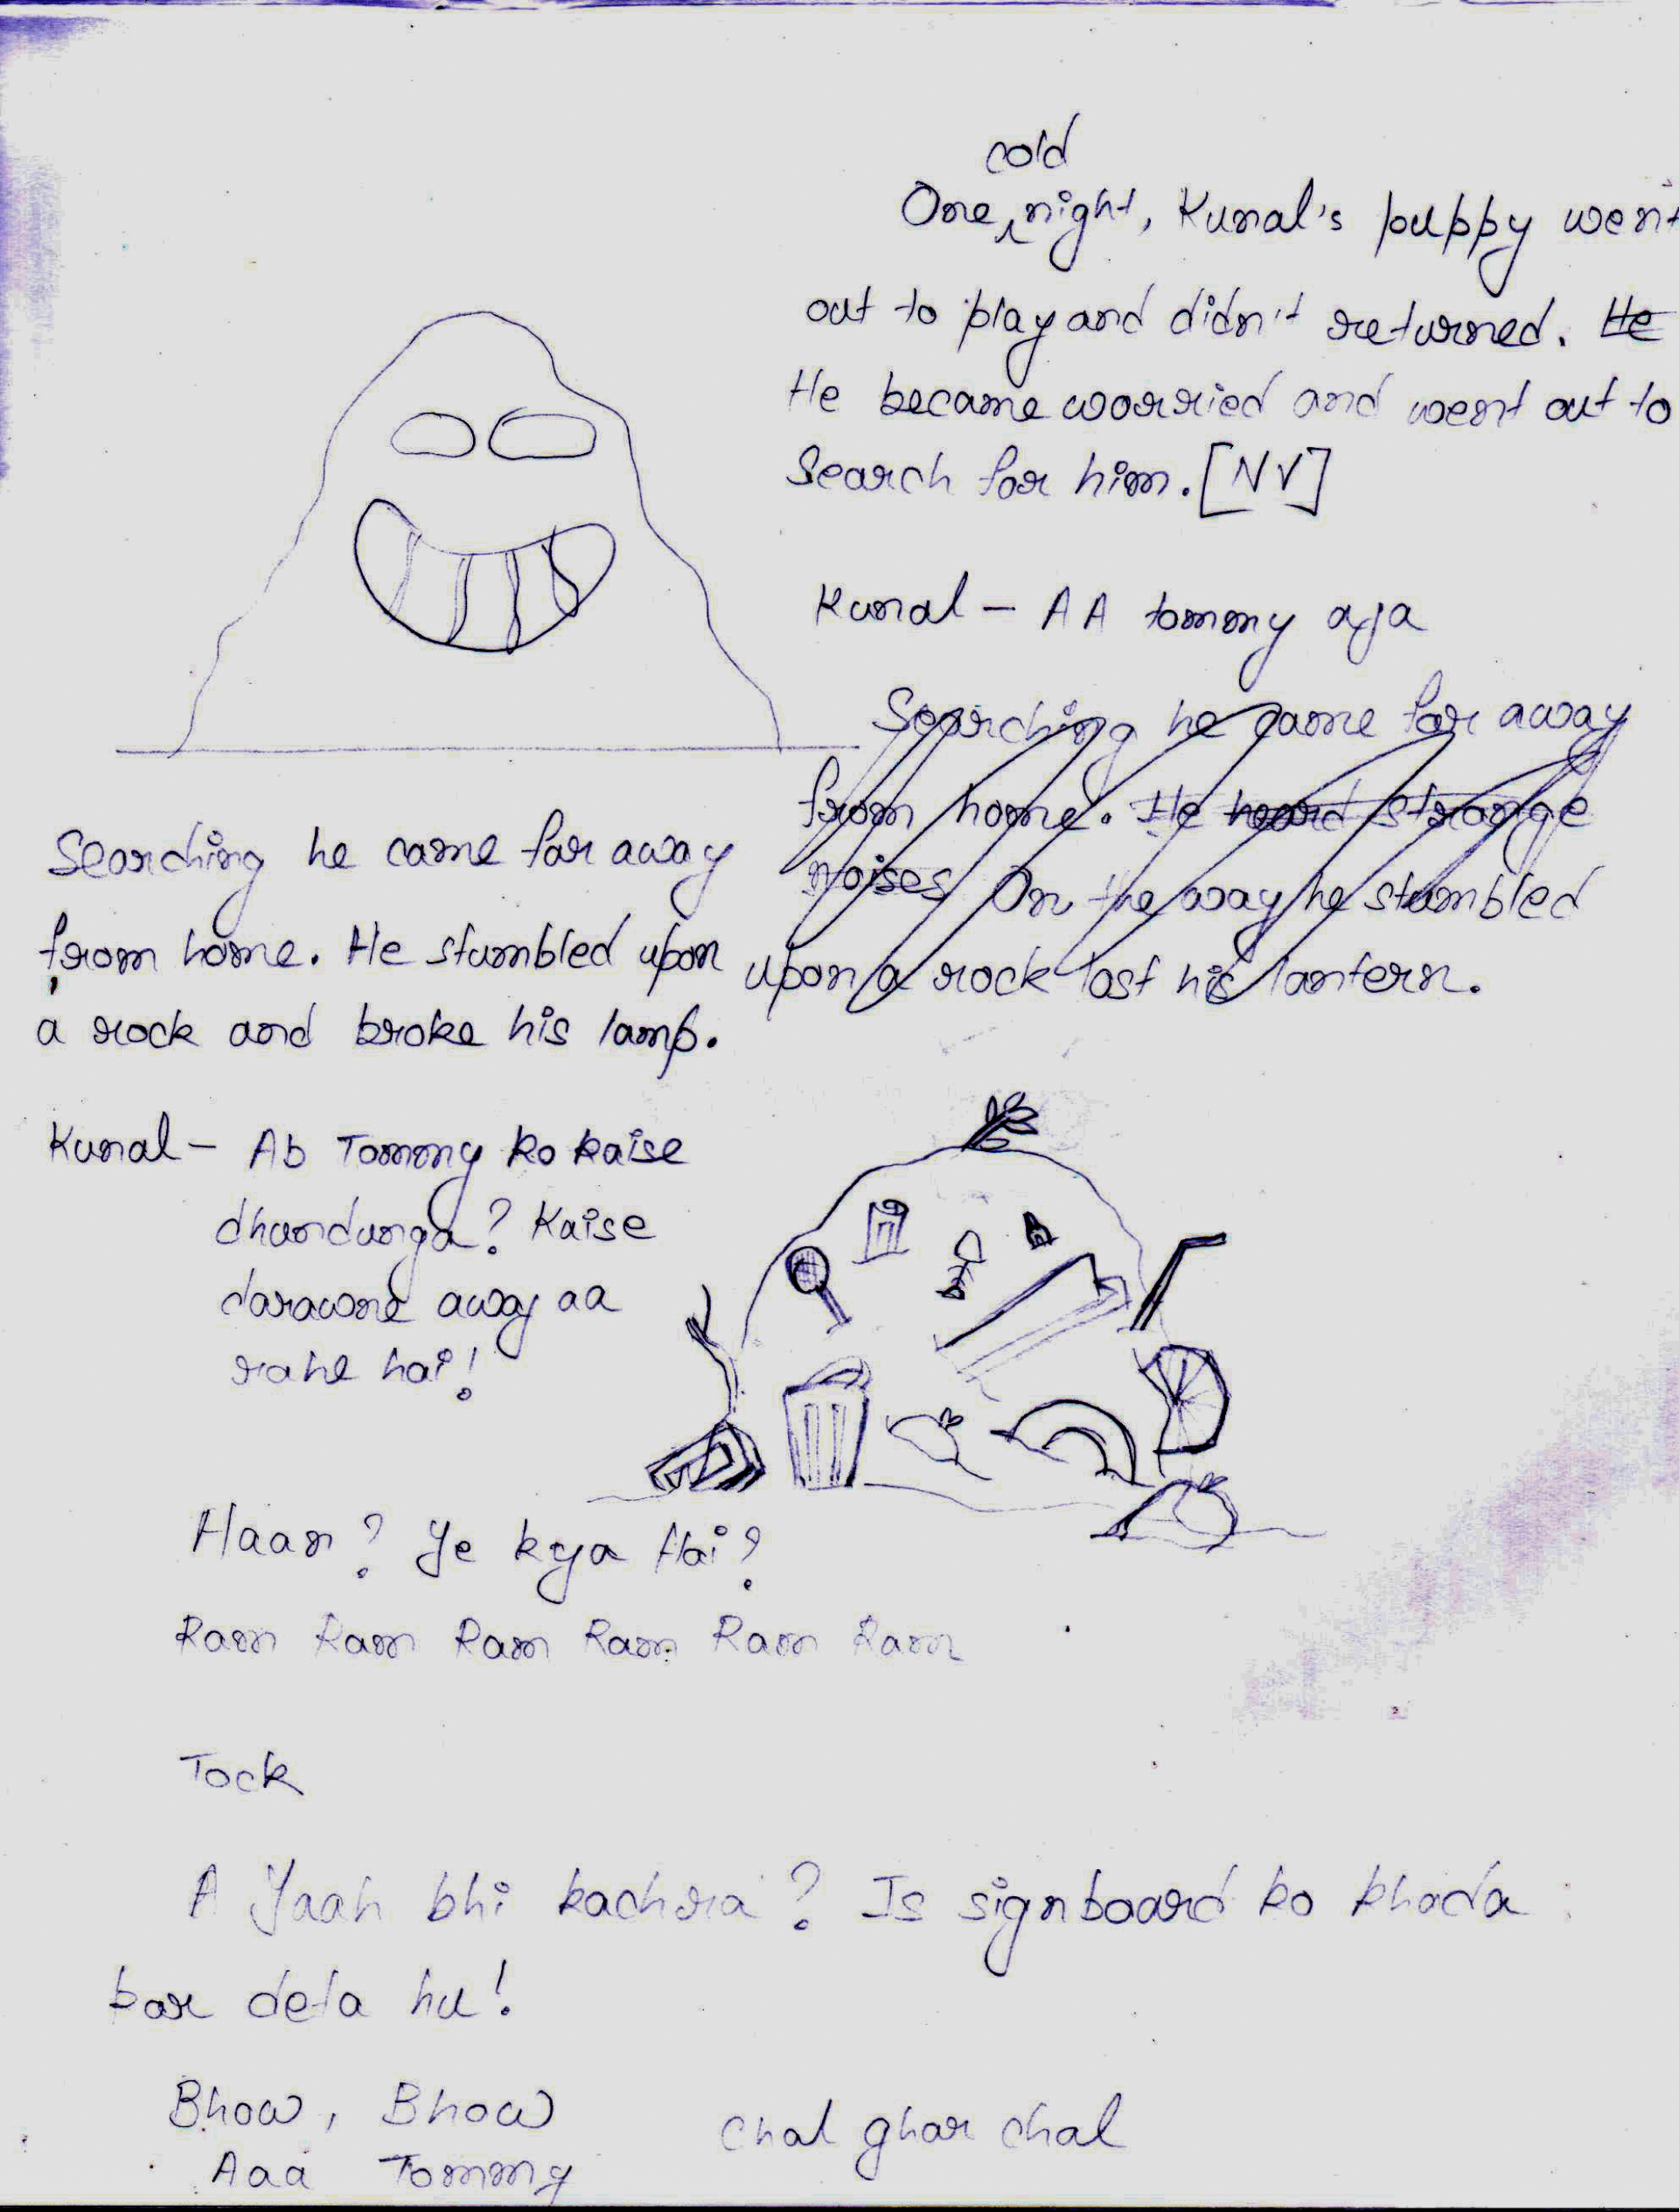 One cold night, Kunal's puppy went
out to play and didn't returned. He
He became worried and went out to
Search for him. [NV]
Kunal - AA tommy aja
Searching he came far away
from home. He heard strange
noises On the way he stumbled
upon a rock lost his lantern.
Searching he came far away
from home. He stumbled upon
a rock and broke his lamp.
Kunal - Ab Tommy ko kaise
dhundunga? Kaise
darawne away aa
rahe hai!
Haan? Ye kya Hai?
Ram Ram Ram Ram Ram Ram
Tock
A Yaah bhi kachra? Is signboard ko khada
kar deta hu!
Bhow, Bhow
Aaa Tommy
Chal ghar chal